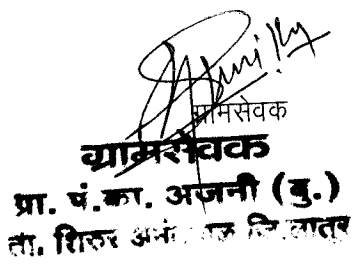 ग्रामसेवक
ग्रामसेवक
प्रा. पं.का. अजनी (बु.)
ता. शिरुर अनंतपाळ जि.लातुर